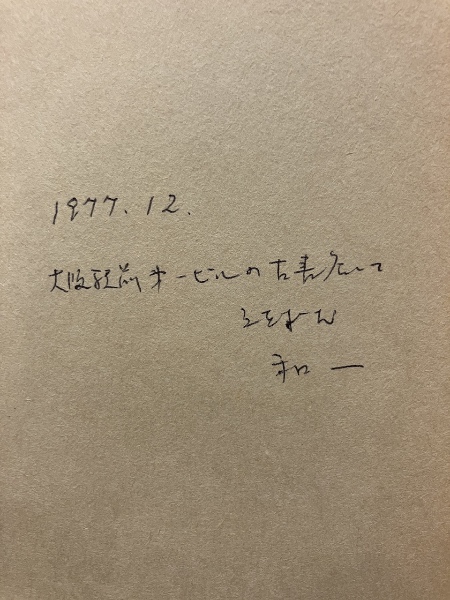 1977.12.
大阪駅前第一ビルの古書店にて
和一